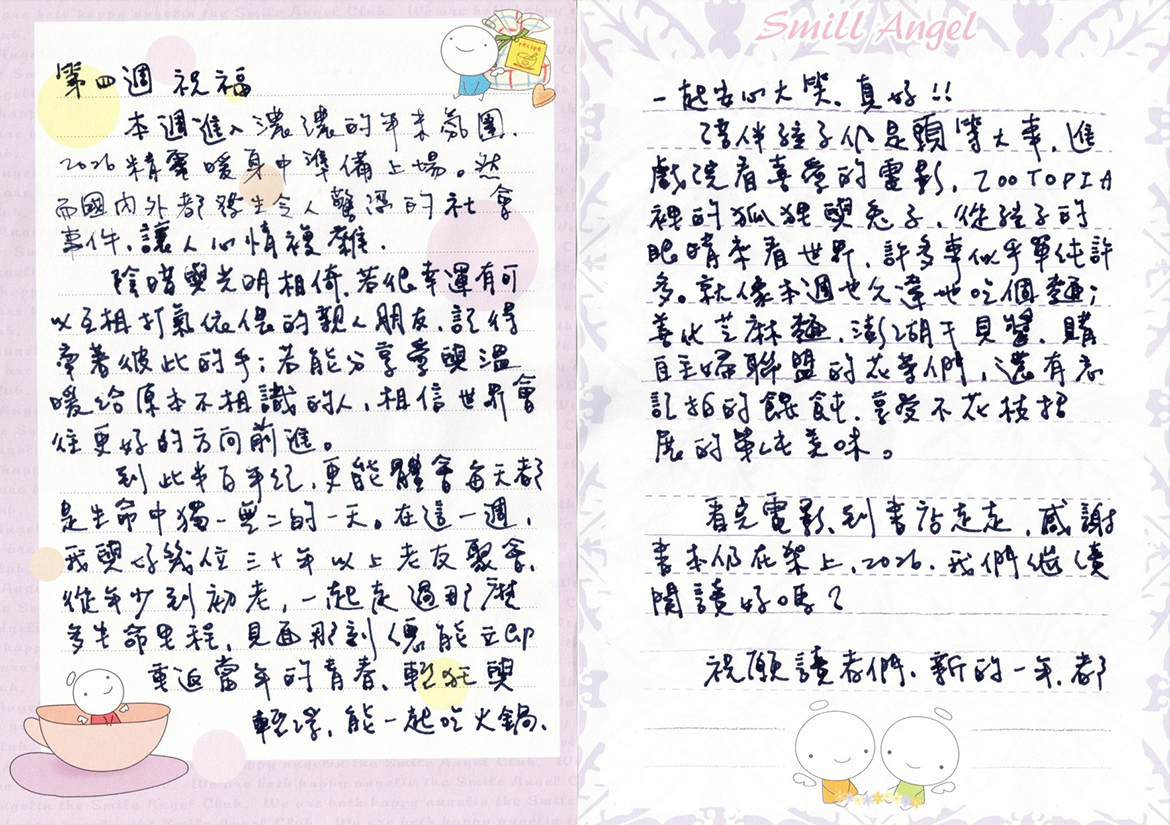 第四週 祝福
本週進入濃濃的年末氛圍，
2026精電暖身中準備上場。然
而國內外都發生令人驚愕的社會
事件，讓人心情複雜。
陰暗與光明相倚，若很幸運有可
以互相打氣依偎的親人朋友，記得
牽著彼此的手；若能分享愛與溫
暖給原本不相識的人，相信世界會
往更好的方向前進。
到此半百年紀，更能體會每天都
是生命中獨一無二的一天。在這一週，
我與好幾位三十年以上老友聚會，
從年少到初老，一起走過那麼
多生命里程，見面那刻總能立即
重返當年的青春、輕狂與
輕浮，能一起吃火鍋、
Smill Angel
一起安心大笑，真好!!
陪伴孩子仍是頭等大事，進
戲院看喜愛的電影，ZOOTOPIA
裡的狐狸與兔子，從孩子的
眼睛來看世界，許多事似乎單純許
多。就像本週也久違地吃個麵；
善化芝麻麵，澎湖干貝醬，購
自主婦聯盟的花等們，還有忘
記拍的餛飩，享受不花枝招
展的單純美味。
看完電影到書店走走，感謝
書本仍在架上，2026，我們繼續
閱讀好嗎？
祝願讀者們，新的一年，都
recipe